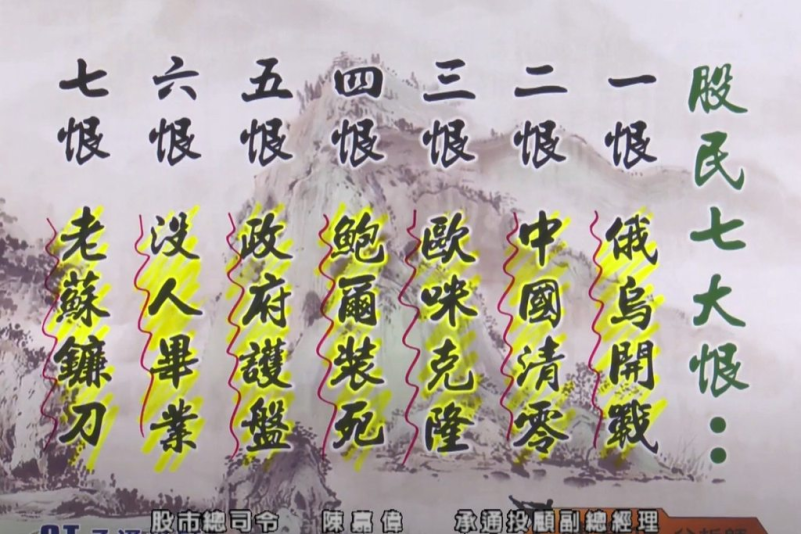 股民七大恨：
一恨 俄烏開戰
二恨 中國清零
三恨 歐咪克隆
四恨 鮑爾裝死
五恨 政府護盤
六恨 沒人畢業
七恨 老蘇鐮刀
股市總司令 陳嘉偉 承通投顧副總經理